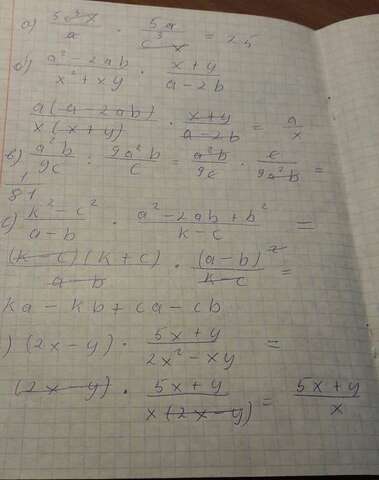 а) 5c³x/a · 5a/c³x = 25
б) a² - 2ab / x² + xy · x + y / a - 2b
a(a - 2ab) / x(x + y) · x + y / a - 2b = a/x
в) a²b / 9c : 9a²b / c = a²b / 9c · c / 9a²b =
1/81
с) k² - c² / a - b · a² - 2ab + b² / k - c =
(k - c)(k + c) / a - b · (a - b)² / k - c =
ka - kb + ca - cb
) (2x - y) · 5x + y / 2x² - xy =
(2x - y) · 5x + y / x(2x - y) = 5x + y / x